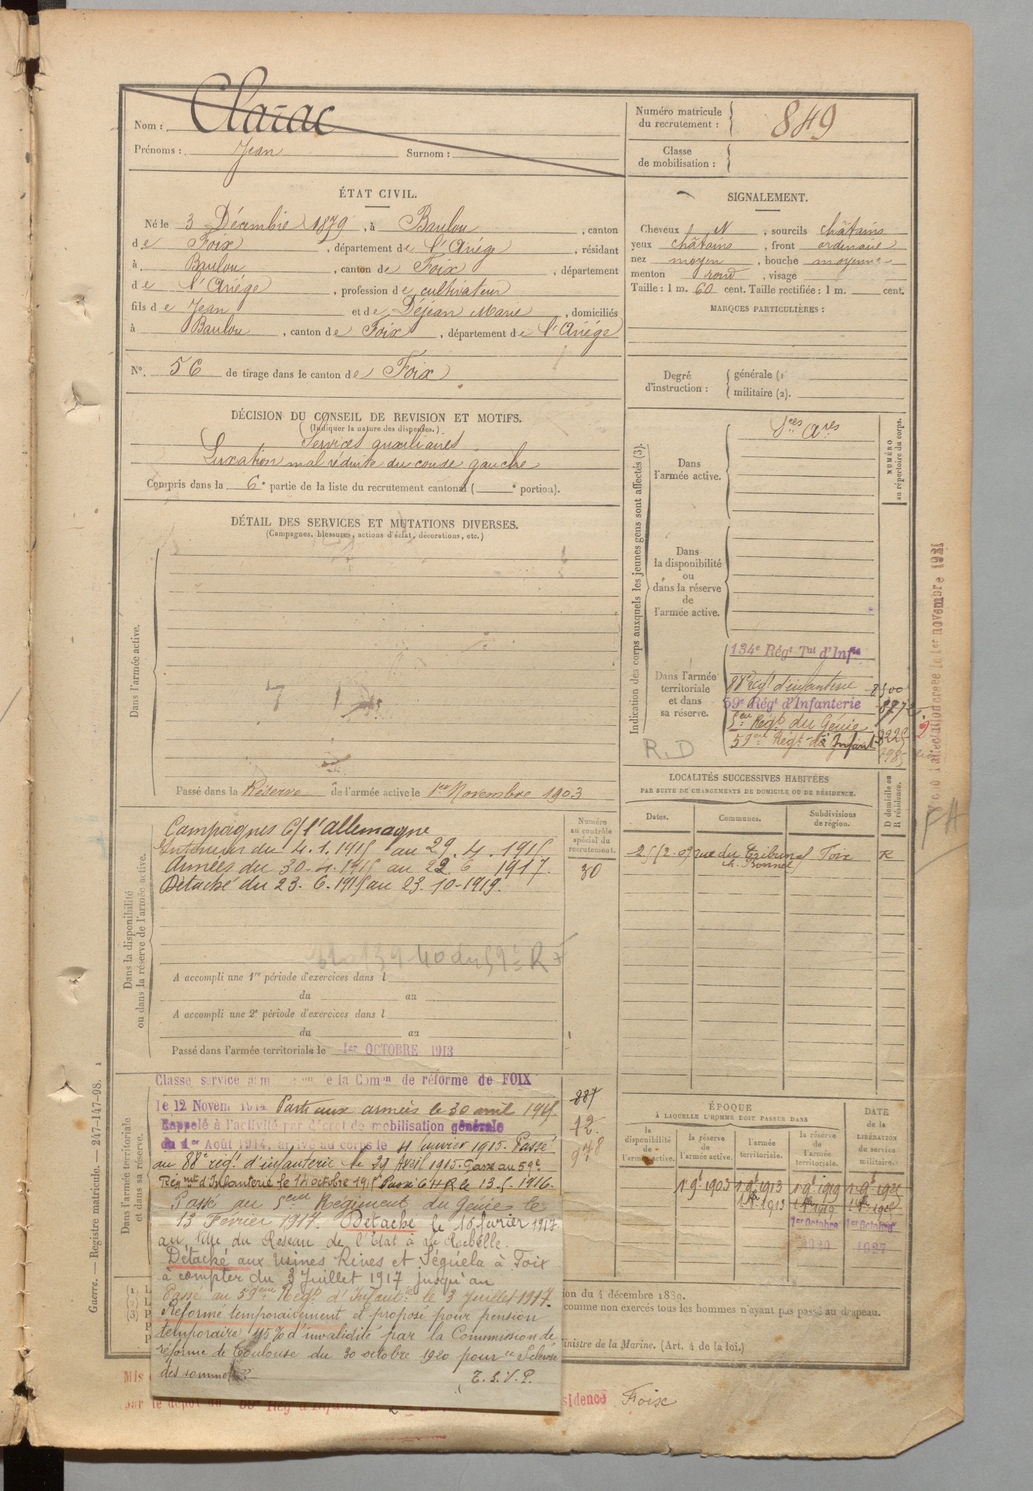 Nom : Clarac
Prénoms : Jean Surnom :
Numéro matricule du recrutement : 849
Classe de mobilisation :
ÉTAT CIVIL.
Né le 3 Décembre 1879, à Baulou, canton
de Foix, département de l'Ariège, résidant
à Baulou, canton de Foix, département
de l'Ariège, profession de cultivateur
fils de Jean et de Déjean Marie, domiciliés
à Baulou, canton de Foix, département de l'Ariège
N°. 56 de tirage dans le canton de Foix
SIGNALEMENT.
Cheveux N, sourcils châtains
yeux châtains, front ordinaire
nez moyen, bouche moyenne
menton rond, visage
Taille : 1 m. 60 cent. Taille rectifiée : 1 m. cent.
MARQUES PARTICULIÈRES :
Degré d'instruction : générale (1)
militaire (2).
DÉCISION DU CONSEIL DE REVISION ET MOTIFS.
(Indiquer la nature des dispenses.)
Services auxiliaires
Luxation mal réduite du coude gauche
Compris dans la 6e partie de la liste du recrutement cantonal ( e portion).
DÉTAIL DES SERVICES ET MUTATIONS DIVERSES.
(Campagnes, blessures, actions d'éclat, décorations, etc.)
Dans l'armée active.
Passé dans la Réserve de l'armée active le 1er Novembre 1903
Indication des corps auxquels les jeunes gens sont affectés (3).
NUMÉRO au répertoire du corps.
Dans l'armée active.
Sces Ares
Dans la disponibilité ou dans la réserve de l'armée active.
Dans l'armée territoriale et dans sa réserve.
134e Régt Tal d'Infie
88e Régt d'infanterie
59e Régt d'Infanterie
5eme Regt du Génie
59eme Regt d'Infant
R.D
LOCALITÉS SUCCESSIVES HABITÉES
PAR SUITE DE CHANGEMENTS DE DOMICILE OU DE RÉSIDENCE.
Dates. Communes. Subdivisions de région. D domicile ou R résidence.
rue du tribunal Foix R
Dans la disponibilité ou dans la réserve de l'armée active.
Numéro au contrôle spécial du recrutement.
30
Campagnes C/ l'Allemagne
Intérieur du 4.1.1915 au 29.4.1915
Armées du 30.4.1915 au 22.6.1917.
Détaché du 23.6.1915 au 23.10.1919.
A accompli une 1re période d'exercices dans l
du au
A accompli une 2e période d'exercices dans l
du au
Passé dans l'armée territoriale le 1er OCTOBRE 1913
Dans l'armée territoriale et dans sa réserve.
Classé service de la Comon de réforme de FOIX
le 12 Novem 1914 Parti aux armées le 30 avril 1915
Rappelé à l'activité par décret de mobilisation générale
du 1er Août 1914, arrivé au corps le 4 janvier 1915. Passé
au 88e régt d'infanterie le 29 Avril 1915. Passé au 59e
Régiment d'Infanterie le 16 octobre 1915 Passé GHR le 13.5.1916.
Passé au 5eme Régiment du Génie le
13 Février 1917. Détaché le 16 fevrier 1917
au Réseau de l'Etat à la Rochelle.
Détaché aux usines Rives et Séguéla à Foix
à compter du 3 Juillet 1917 jusqu'au
Passé au 59eme Régt d'Infant le 3 juillet 1917.
Réformé temporairement et proposé pour pension
temporaire 15% d'invalidité par la Commission de
réforme de Toulouse du 30 octobre 1920 pour Sclérose
des sommets
T.S.V.P.
ÉPOQUE
À LAQUELLE L'HOMME DOIT PASSER DANS
la disponibilité de l'armée active. la réserve de l'armée active. l'armée territoriale. la réserve de l'armée territoriale.
DATE de la LIBÉRATION du service militaire.
ion du 4 décembre 1889.
comme non exercés tous les hommes n'ayant pas passé au drapeau.
Ministre de la Marine. (Art. 4 de la loi.)
sidence Foix
Guerre. — Registre matricule. — 247-147-98.